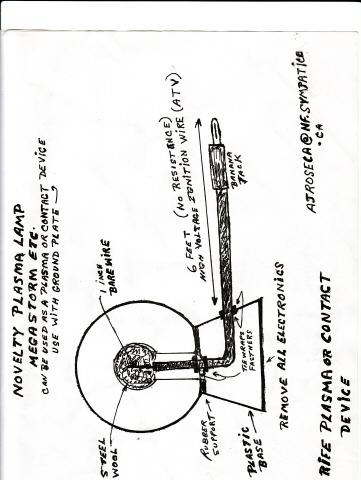 NOVELTY PLASMA LAMP
MEGASTORM ETC.
CAN BE USED AS A PLASMA OR CONTACT DEVICE
USE WITH GROUND PLATE →
STEEL
WOOL
1 INCH
BARE WIRE
6 FEET (NO RESISTENCE)
HIGH VOLTAGE IGNITION WIRE (ATV)
BANANA
JACK
RUBBER
SUPPORT
TIE WRAPS
FASTNERS
PLASTIC
BASE
REMOVE ALL ELECTRONICS
AJROSECA@NF.SYMPATICO
.CA
RIFE PLASMA OR CONTACT
DEVICE